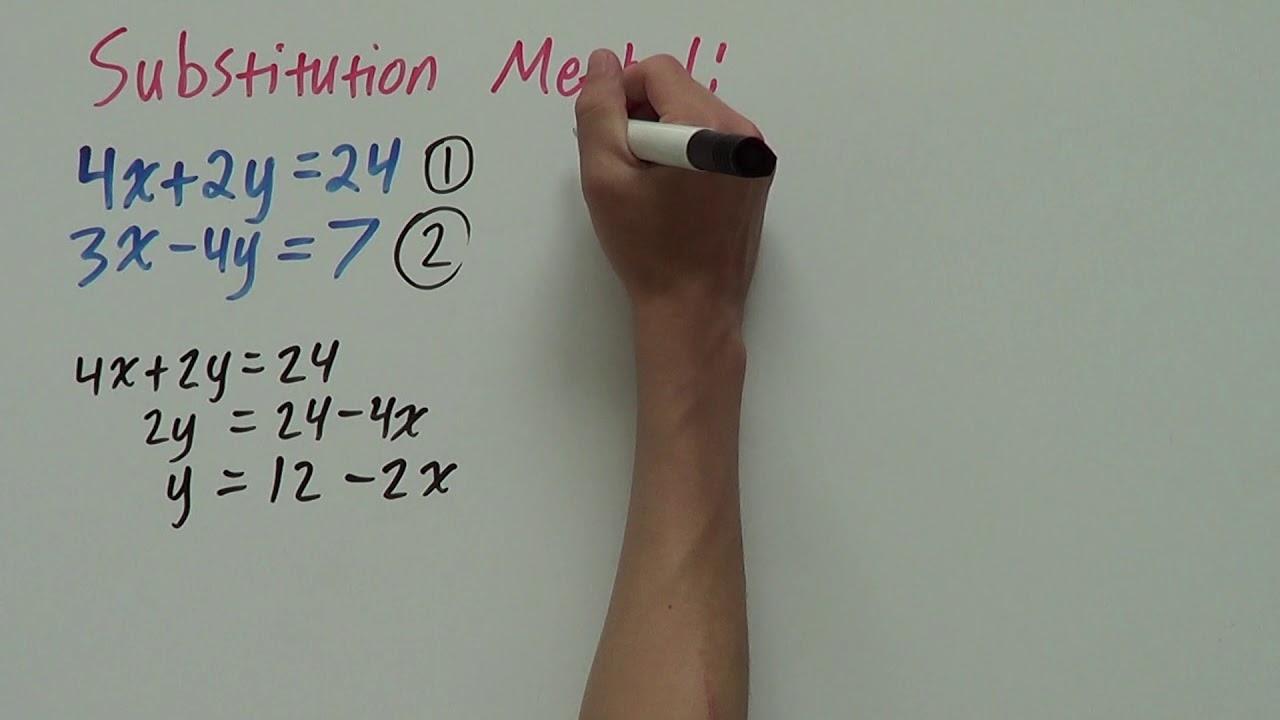 Substitution
4x+2y=24 ①
3x-4y=7 ②
4x+2y=24
2y = 24-4x
y = 12-2x